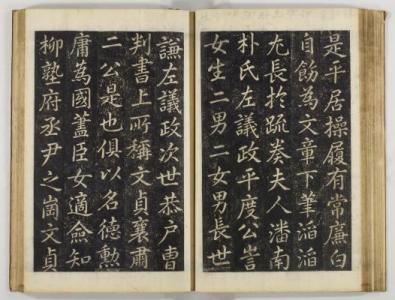 是平居操履有常廉白
自飭為文章下筆滔滔
尤長於疏奏夫人潘南
朴氏左議政平度公訔
女生二男二女男長世
謙左議政次世恭戶曹
判書上所稱文貞襄肅
二公是也俱以名德勳
庸為國藎臣女適僉知
柳塾府丞尹之崗文貞